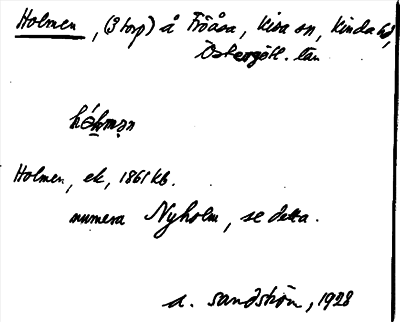 Holmen, (3 torp) å Fröåsa, Kisa sn, Kinda hd,
Östergötl. län
Holmen, ek, 1861 kb.
numera Nyholm, se detta.
A. Sandström, 1928